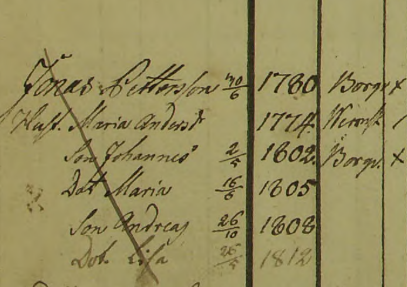 Jonas Petterson 30/6 1780 Borgs. x
Hust. Maria Andersdr 1774
Son Johannes 2/5 1802. Borgs. x
Dot. Maria 16/6 1805
Son Andreas 26/10 1808
Dot. Lisa 1812